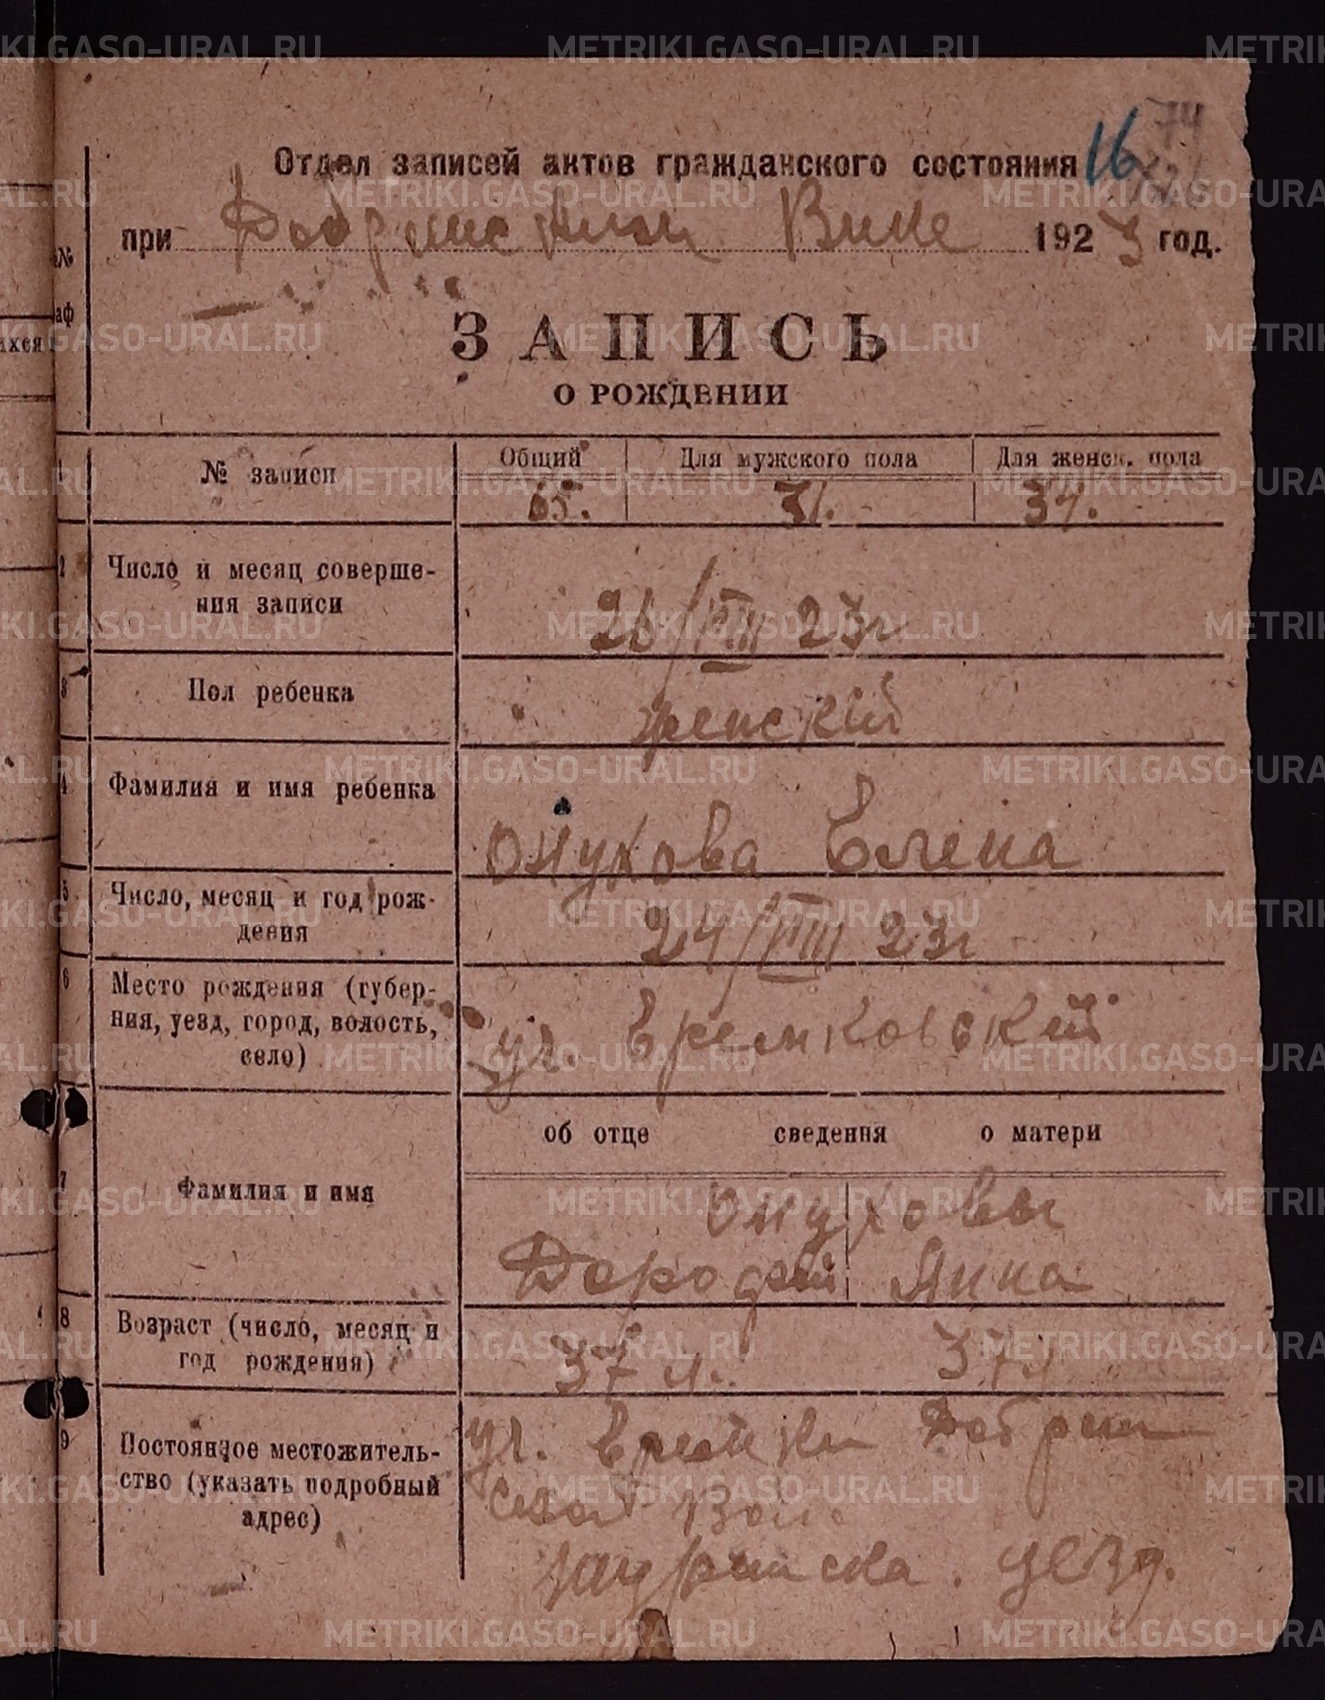 74
Отдел записей актов гражданского состояния 16
при Вике 1923 год.
ЗАПИСЬ
О РОЖДЕНИИ
№
аф
ихся
1 № записи Общий Для мужского пола Для женск. пола
65. 31. 34.
2 Число и месяц соверше-
ния записи
26/VIII 23г
3 Пол ребенка женский
4 Фамилия и имя ребенка
Онухова Елена
5 Число, месяц и год рож-
дения
24/VIII 23г
6 Место рождения (губер-
ния, уезд, город, волость,
село)
уч. Еремковский
об отце сведения о матери
7 Фамилия и имя
Онуховы
Дорофей Анна
8 Возраст (число, месяц и
год рождения)
37 л. 37 л
9 Постоянное местожитель-
ство (указать подробный
адрес)
уч.
Вол.
уезд.
METRIKI.GASO-URAL.RU